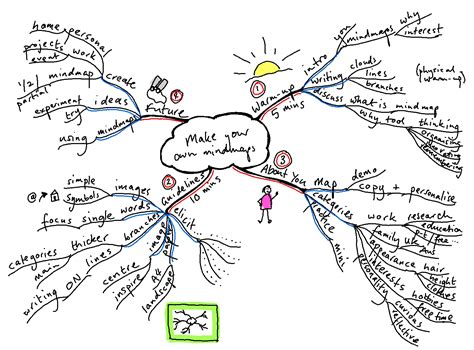 Make your
own mindmaps
1
Warm-up
5 mins
intro
you
mindmaps
why
interest
writing
clouds
lines
branches
(physical
warm-up)
discuss
what is mindmap
why tool
thinking
organising
planning
3
About You
map
demo
copy + personalise
categories
work
research
education
p-t/free...
family
UK
appearance
hair
height
clothes
interests
hobbies
free time
personality
curious
reflective
practice
mini
2
Guidelines
10 mins
images
simple
symbols
@
words
single
focus
branches
thicker
main
categories
lines
ON
writing
image
centre
inspire
paper
A4
landscape
elicit
4
Future
create
personal
home
work
projects
event
mindmap
1/2
partial
ideas
experiment
try
mindmaps
using